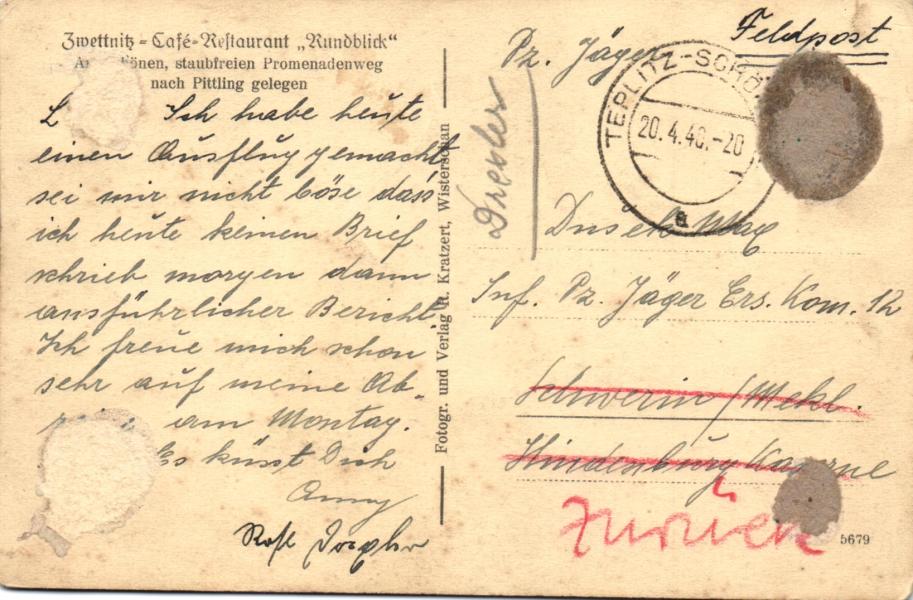 Zwettnitz - Café-Restaurant „Rundblick“
staubfreien Promenadenweg
nach Pittling gelegen
L Ich habe heute
einen Ausflug gemacht
sei mir nicht böse dass
ich heute keinen Brief
schrieb morgen dann
ausführlicher Bericht
Ich freue mich schon
sehr auf meine Ab-
am Montag.
Es küsst Dich
Anny
Fotogr. und Verlag R. Kratzert, Wisterschan
Feldpost
Pz. Jäger
Drexler
TEPLITZ-SCHÖ
20.4.40.-20
a
Dušek Max
Inf. Pz. Jäger Ers. Kom. 12
Schwerin / Mekl.
Hindenburg Kaserne
Zurück
5679